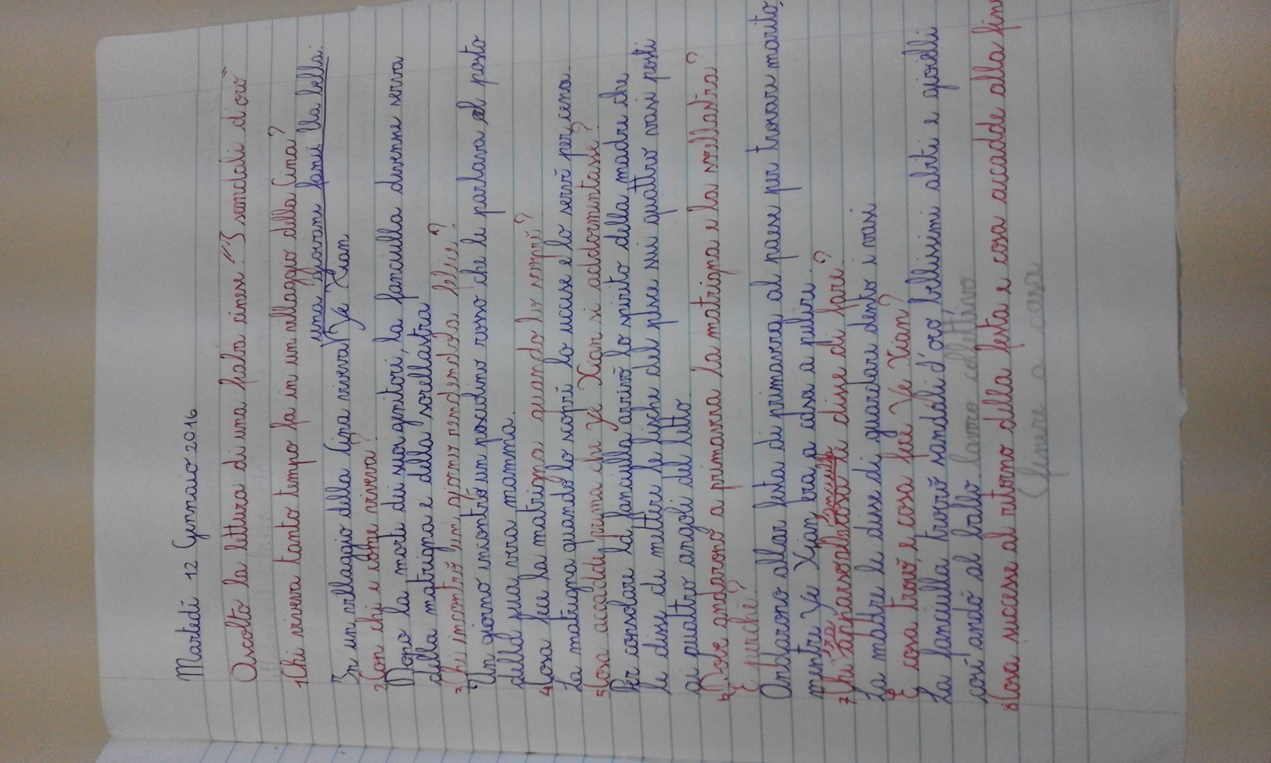 Martedì 12 Gennaio 2016
Ascolto la lettura di una fiaba cinese: "I sandali d'oro"
1) Chi viveva tanto tempo fa in un villaggio della Cina?
una giovane fanciulla bella.
In un villaggio della Cina viveva Ye Xian
2) Con chi e come viveva?
Dopo la morte dei suoi genitori, la fanciulla divenne serva
della matrigna e della sorellastra
3) Chi incontrò un giorno rendendola felice?
Un giorno incontrò un pesciolino rosso che le parlava al posto
della sua vera mamma.
4) Cosa fece la matrigna quando lo scoprì?
La matrigna quando lo scoprì lo uccise e lo servì per cena.
5) Cosa accadde prima che Ye Xian si addormentasse?
Per consolare la fanciulla arrivò lo spirito della madre che
le disse di mettere le lische del pesce sui quattro vasi posti
ai quattro angoli del letto.
6) Dove andarono a primavera la matrigna e la sorellastra?
E perchè?
Andarono alla festa di primavera al paese per trovare marito,
mentre Ye Xian era a casa a pulire.
7) Chi apparve alla fanciulla e cosa le disse di fare?
La madre le disse di guardare dentro i vasi
E cosa trovò, e cosa fece Ye Xian?
La fanciulla trovò sandali d'oro, bellissimi abiti e gioielli
così andò al ballo lavoro collettivo
8) Cosa successe al ritorno della festa e cosa accadde alla fine
(finire a casa